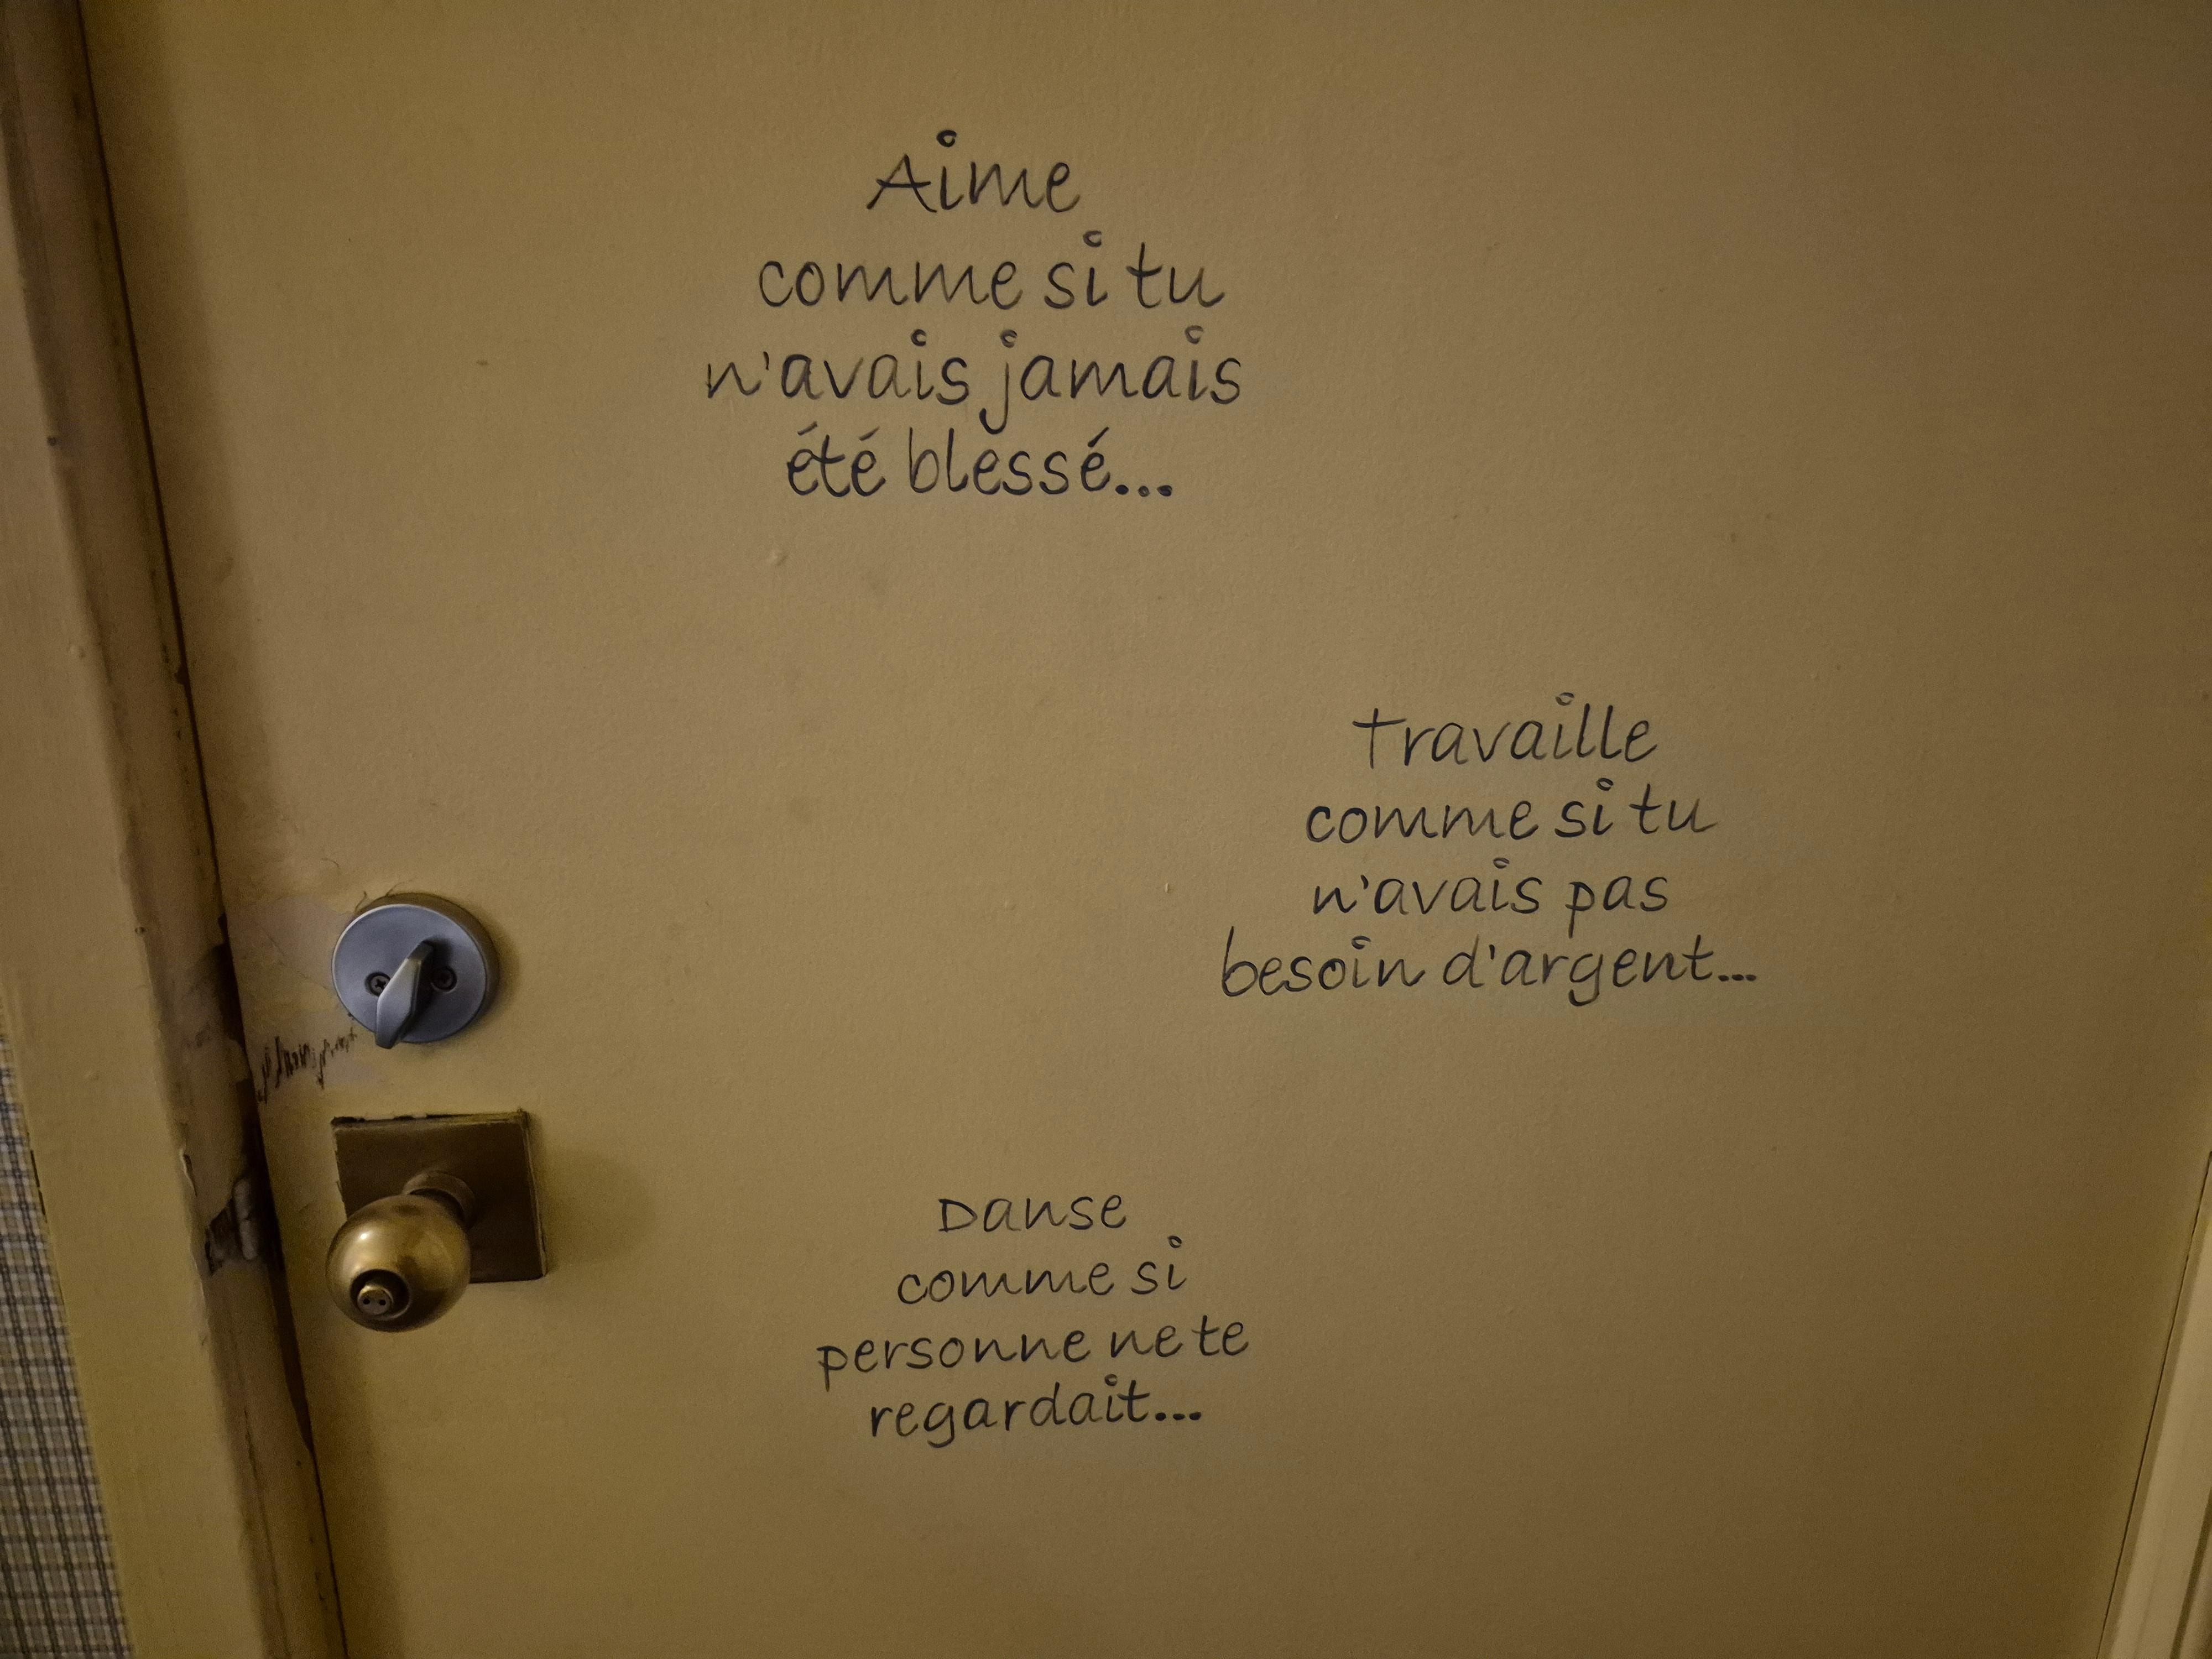 Aime
comme si tu
n'avais jamais
été blessé...
Travaille
comme si tu
n'avais pas
besoin d'argent...
Danse
comme si
personne ne te
regardait...